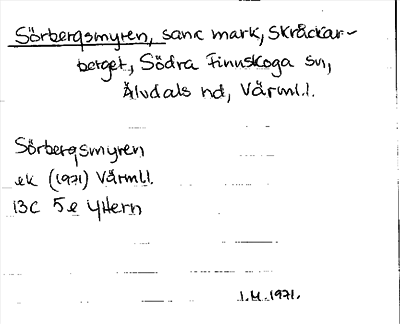 Sörbergsmyren, sank mark, Skråckar-
berget, Södra Finnskoga sn,
Älvdals hd, Värml.l.
Sörbergsmyren
ek (1971) Värml.l.
13C 5e Yttern
I.M. 1971.